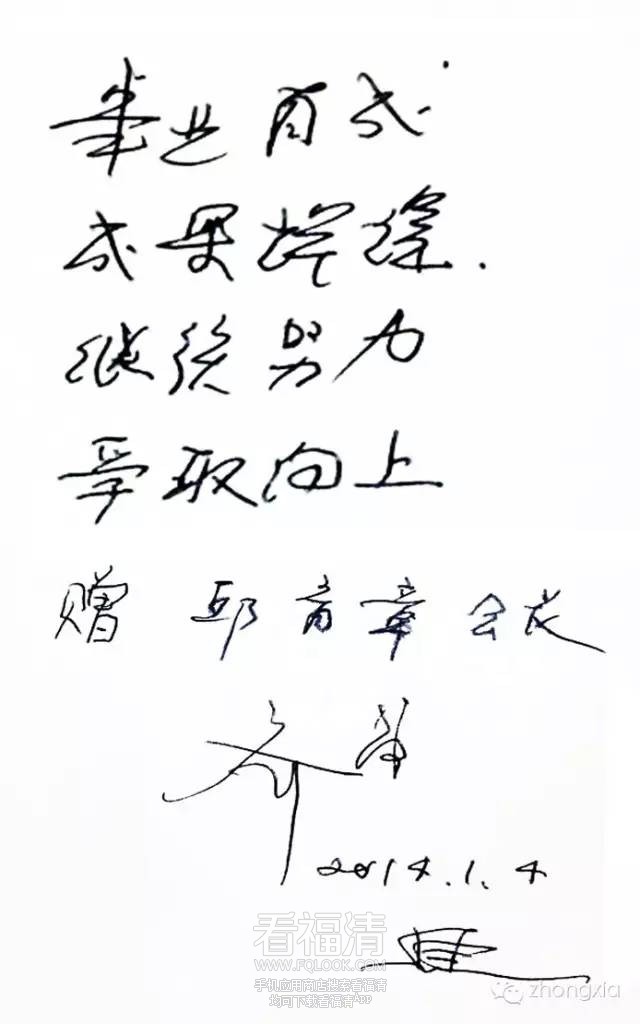 事业有成
成果辉煌.
继续努力
争取向上
赠 邱育章会长
2014.1.4
看福清
WWW.FQLOOK.COM
手机应用商店搜索看福清
均可下载看福清APP
zhongxia